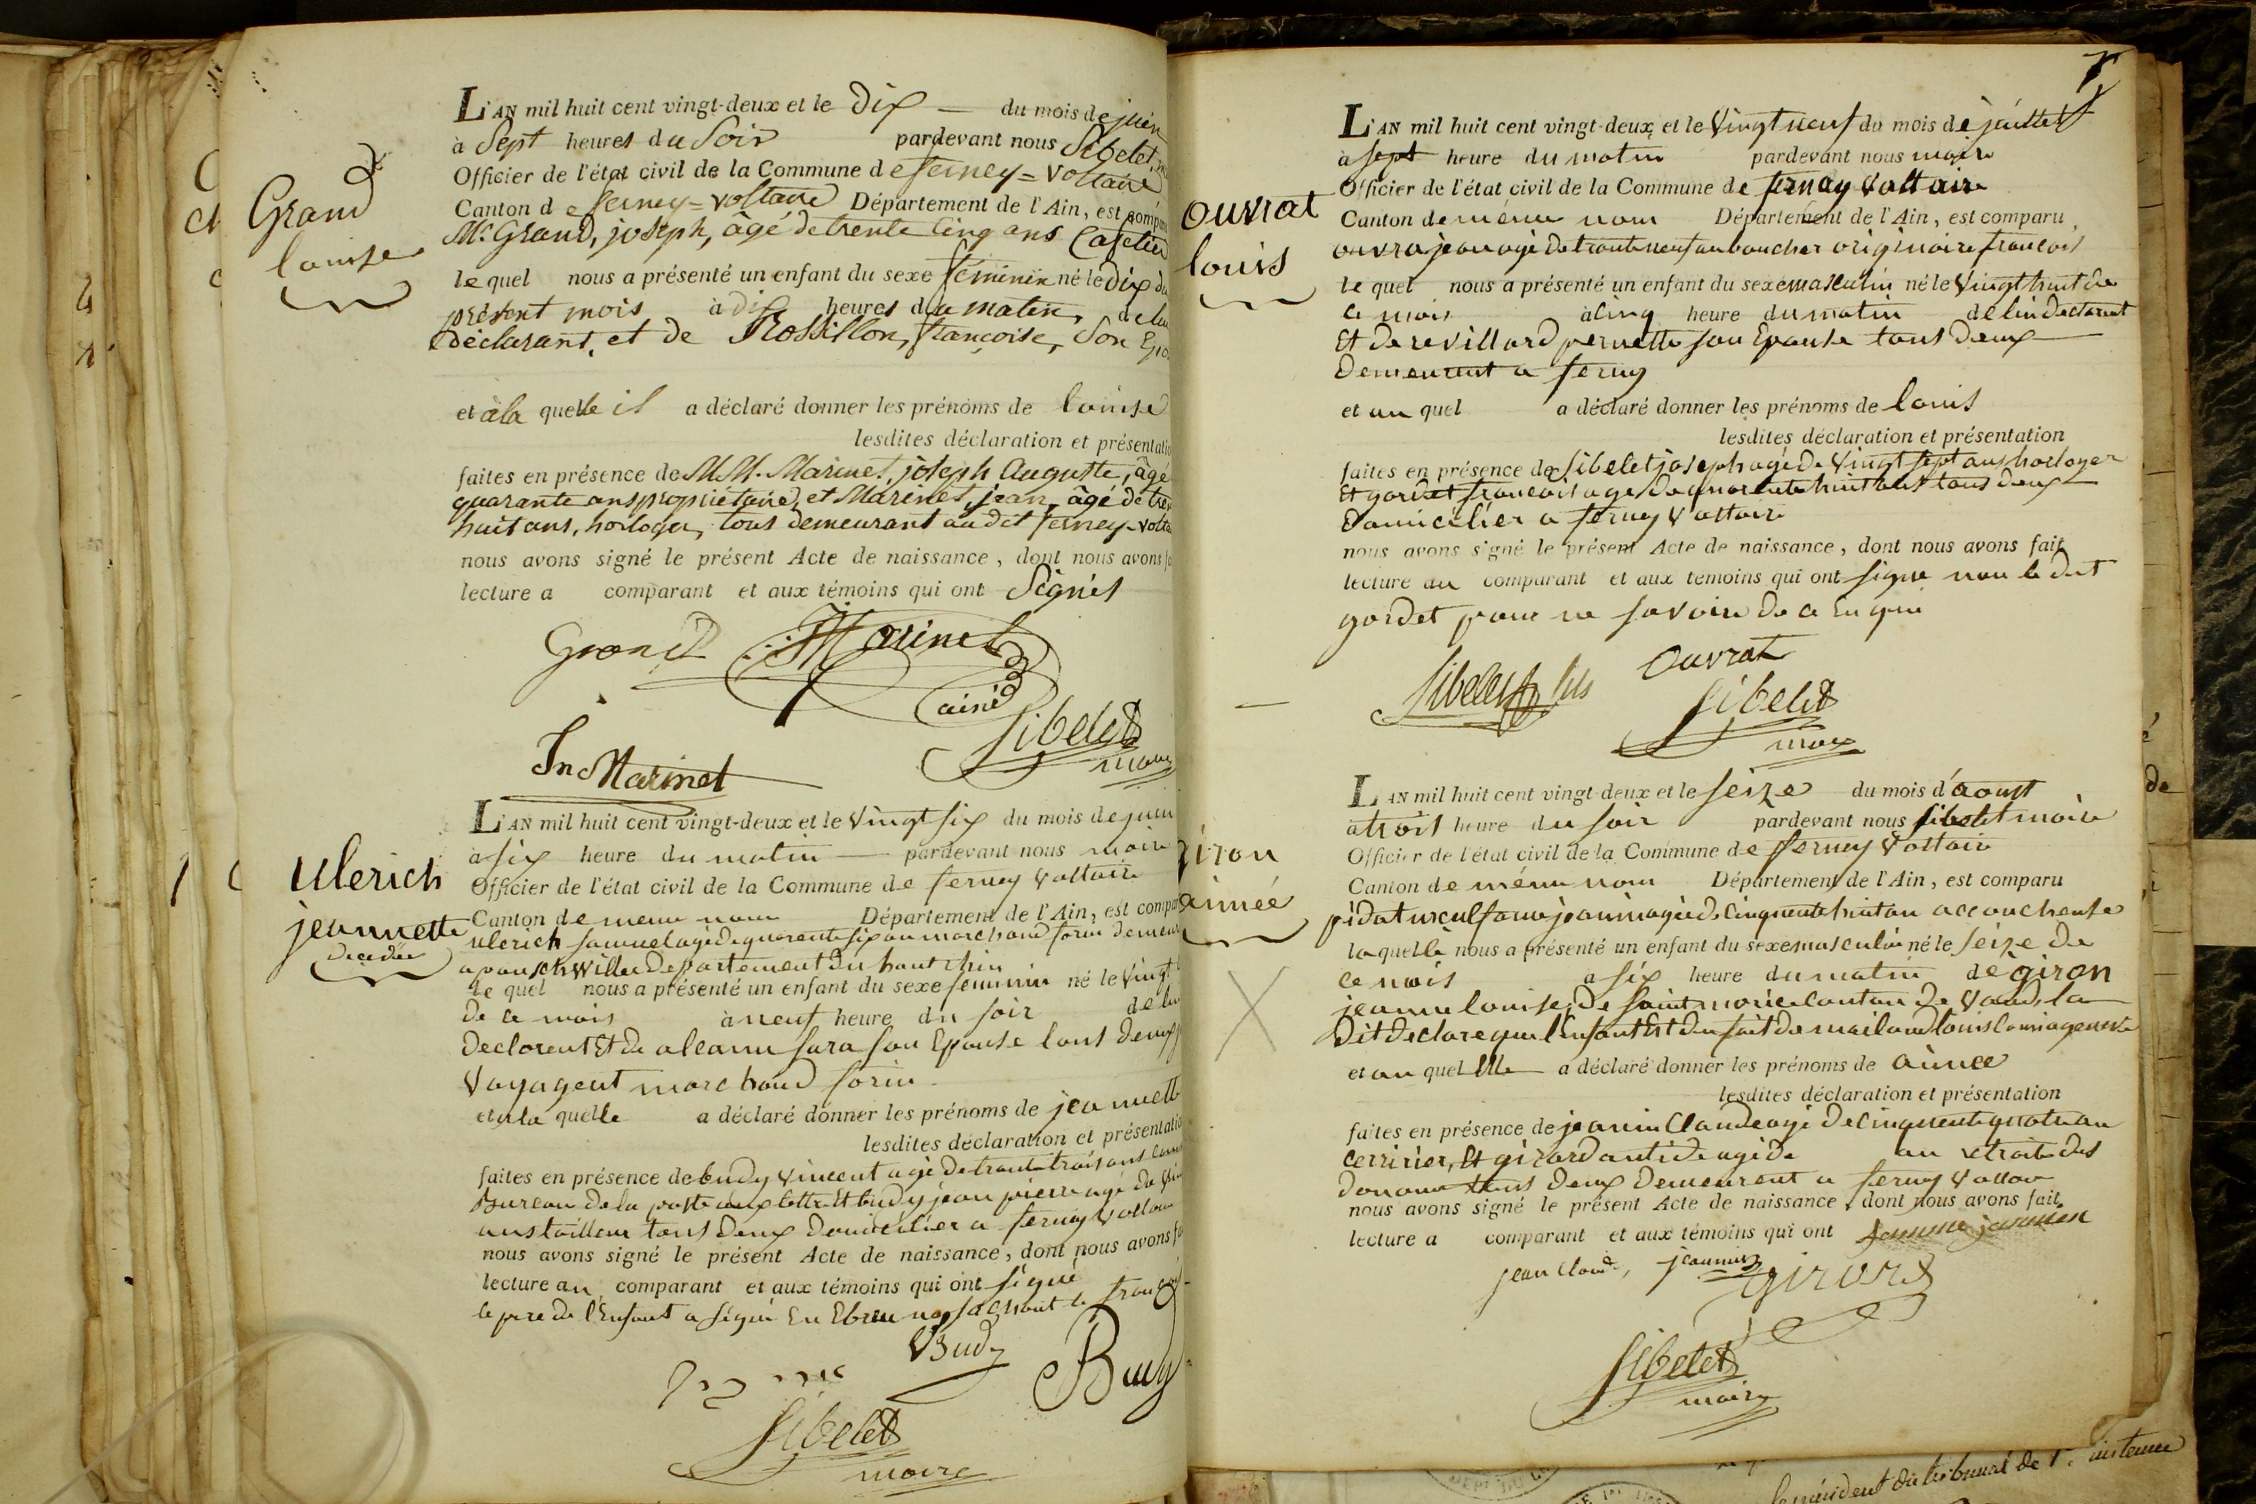 Grand
louise
L'AN mil huit cent vingt-deux et le dix — du mois de juin
à Sept heures du Soir pardevant nous Sibelet,
Officier de l'état civil de la Commune de ferney=voltaire
Canton de ferney=voltaire Département de l'Ain, est comparu
Mr. Grand, joseph, âgé de trente Cinq ans Cafetier
le quel nous a présenté un enfant du sexe féminin né le dix du
présent mois à dix heures du matin, de lui
déclarant, et de Rossillon, françoise, Son Epou
et à la quelle il a déclaré donner les prénoms de louise
lesdites déclaration et présentation
faites en présence de MM. Marinet, joseph Auguste, âgé
quarante ans propriétaire, et Marinet, jean, âgé de tren
huit ans, horloger, tous demeurant au dit ferney-volta
nous avons signé le présent Acte de naissance, dont nous avons fa
lecture a comparant et aux témoins qui ont Signés
Grand Marinet
ainé
Sibelet
maire
Jn Marinet
Ulerich
jeannette
décédée
L'AN mil huit cent vingt-deux et le vingt six du mois de juin
à six heure du matin — pardevant nous maire
Officier de l'état civil de la Commune de ferney voltaire
Canton de meme nom Département de l'Ain, est compar
ulerich samuel agé de quarente six an marchand forin demeur
departement du haut rhin
le quel nous a présenté un enfant du sexe feminin né le vingt
de ce mois à neuf heure du soir de lui
declorent Et de sara son Epouse tous deux
voyagent marchand forin
et a la quelle a déclaré donner les prénoms de jeannette
lesdites déclaration et présentation
faites en présence de budy vincent agé de trente trois ans
Bureau de la poste aux lettre Et budy jean pierre agé de
ans tailleur tous deux domicilier a ferney voltaire
nous avons signé le présent Acte de naissance, dont nous avons fa
lecture au comparant et aux témoins qui ont signé
le pere de l'Enfant a signé En Ebreu ne sachant le françois
Budy
Budy
Sibelet
maire
ouvrat
louis
L'AN mil huit cent vingt-deux et le vingt neuf du mois de juillet
à sept heure du matin pardevant nous maire
Officier de l'état civil de la Commune de ferney voltaire
Canton de même nom Département de l'Ain, est comparu
ouvra jean agé de trante neuf an boucher originaire francois
le quel nous a présenté un enfant du sexe masculin né le vingt huit de
ce mois à cinq heure du matin de lui declarent
Et de revillard pernette son Epouse tous deux
demeurent a ferney
et au quel a déclaré donner les prénoms de louis
lesdites déclaration et présentation
faites en présence de Sibelet joseph agé de vingt sept ans horloger
Et gordet francois agé de quarente huit ans tous deux
domicilier a ferney voltaire
nous avons signé le présent Acte de naissance, dont nous avons fait
lecture au comparant et aux témoins qui ont signé non le dit
gordet pour ne savoire de ce Enqui
Sibelet fils
Ouvrat
Sibelet
maire
giron
aimée
L'AN mil huit cent vingt-deux et le seize du mois d'aoust
à trois heure du soir pardevant nous sibelet maire
Officier de l'état civil de la Commune de ferney voltaire
Canton de même nom Département de l'Ain, est comparu
agée de cinquente huit an accoucheuse
la quelle nous a présenté un enfant du sexe masculin né le seize de
ce mois à six heure du matin de giron
jeanne louise, de saint canton de vaud, la
dit declare que l'Enfant Est du fait de louis
et au quel Elle a déclaré donner les prénoms de aimée
lesdites déclaration et présentation
faites en présence de jeanin Claude agé de cinquente quatre an
cerririer, Et girard antide agé de an retraite des
douane tous deux demeurent a ferney voltaire
nous avons signé le présent Acte de naissance, dont nous avons fait
lecture a comparant et aux témoins qui ont
jean Claude, jeannin
girard
Sibelet
maire
le président du tribunal de 1re instance